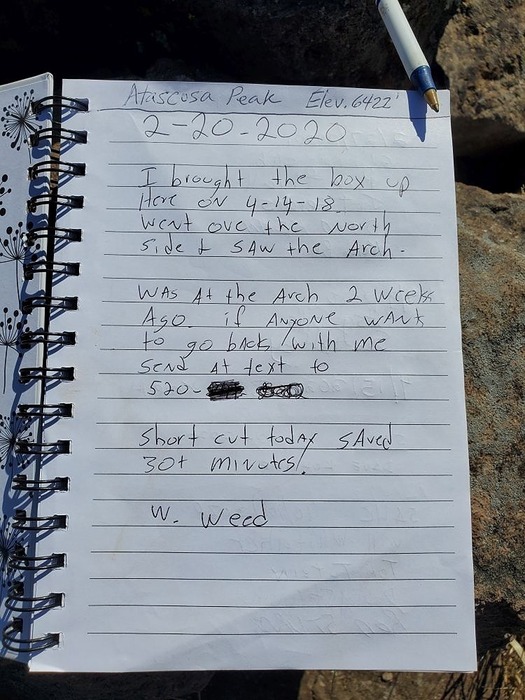 Atascosa Peak Elev. 6422'
2-20-2020
I brought the box up
Here on 4-14-18.
Went ove the North
side & saw the Arch.
Was at the Arch 2 weeks
Ago. if Anyone want
to go back with me
send at text to
520-
Short cut today saved
30+ minutes!
W. Weed